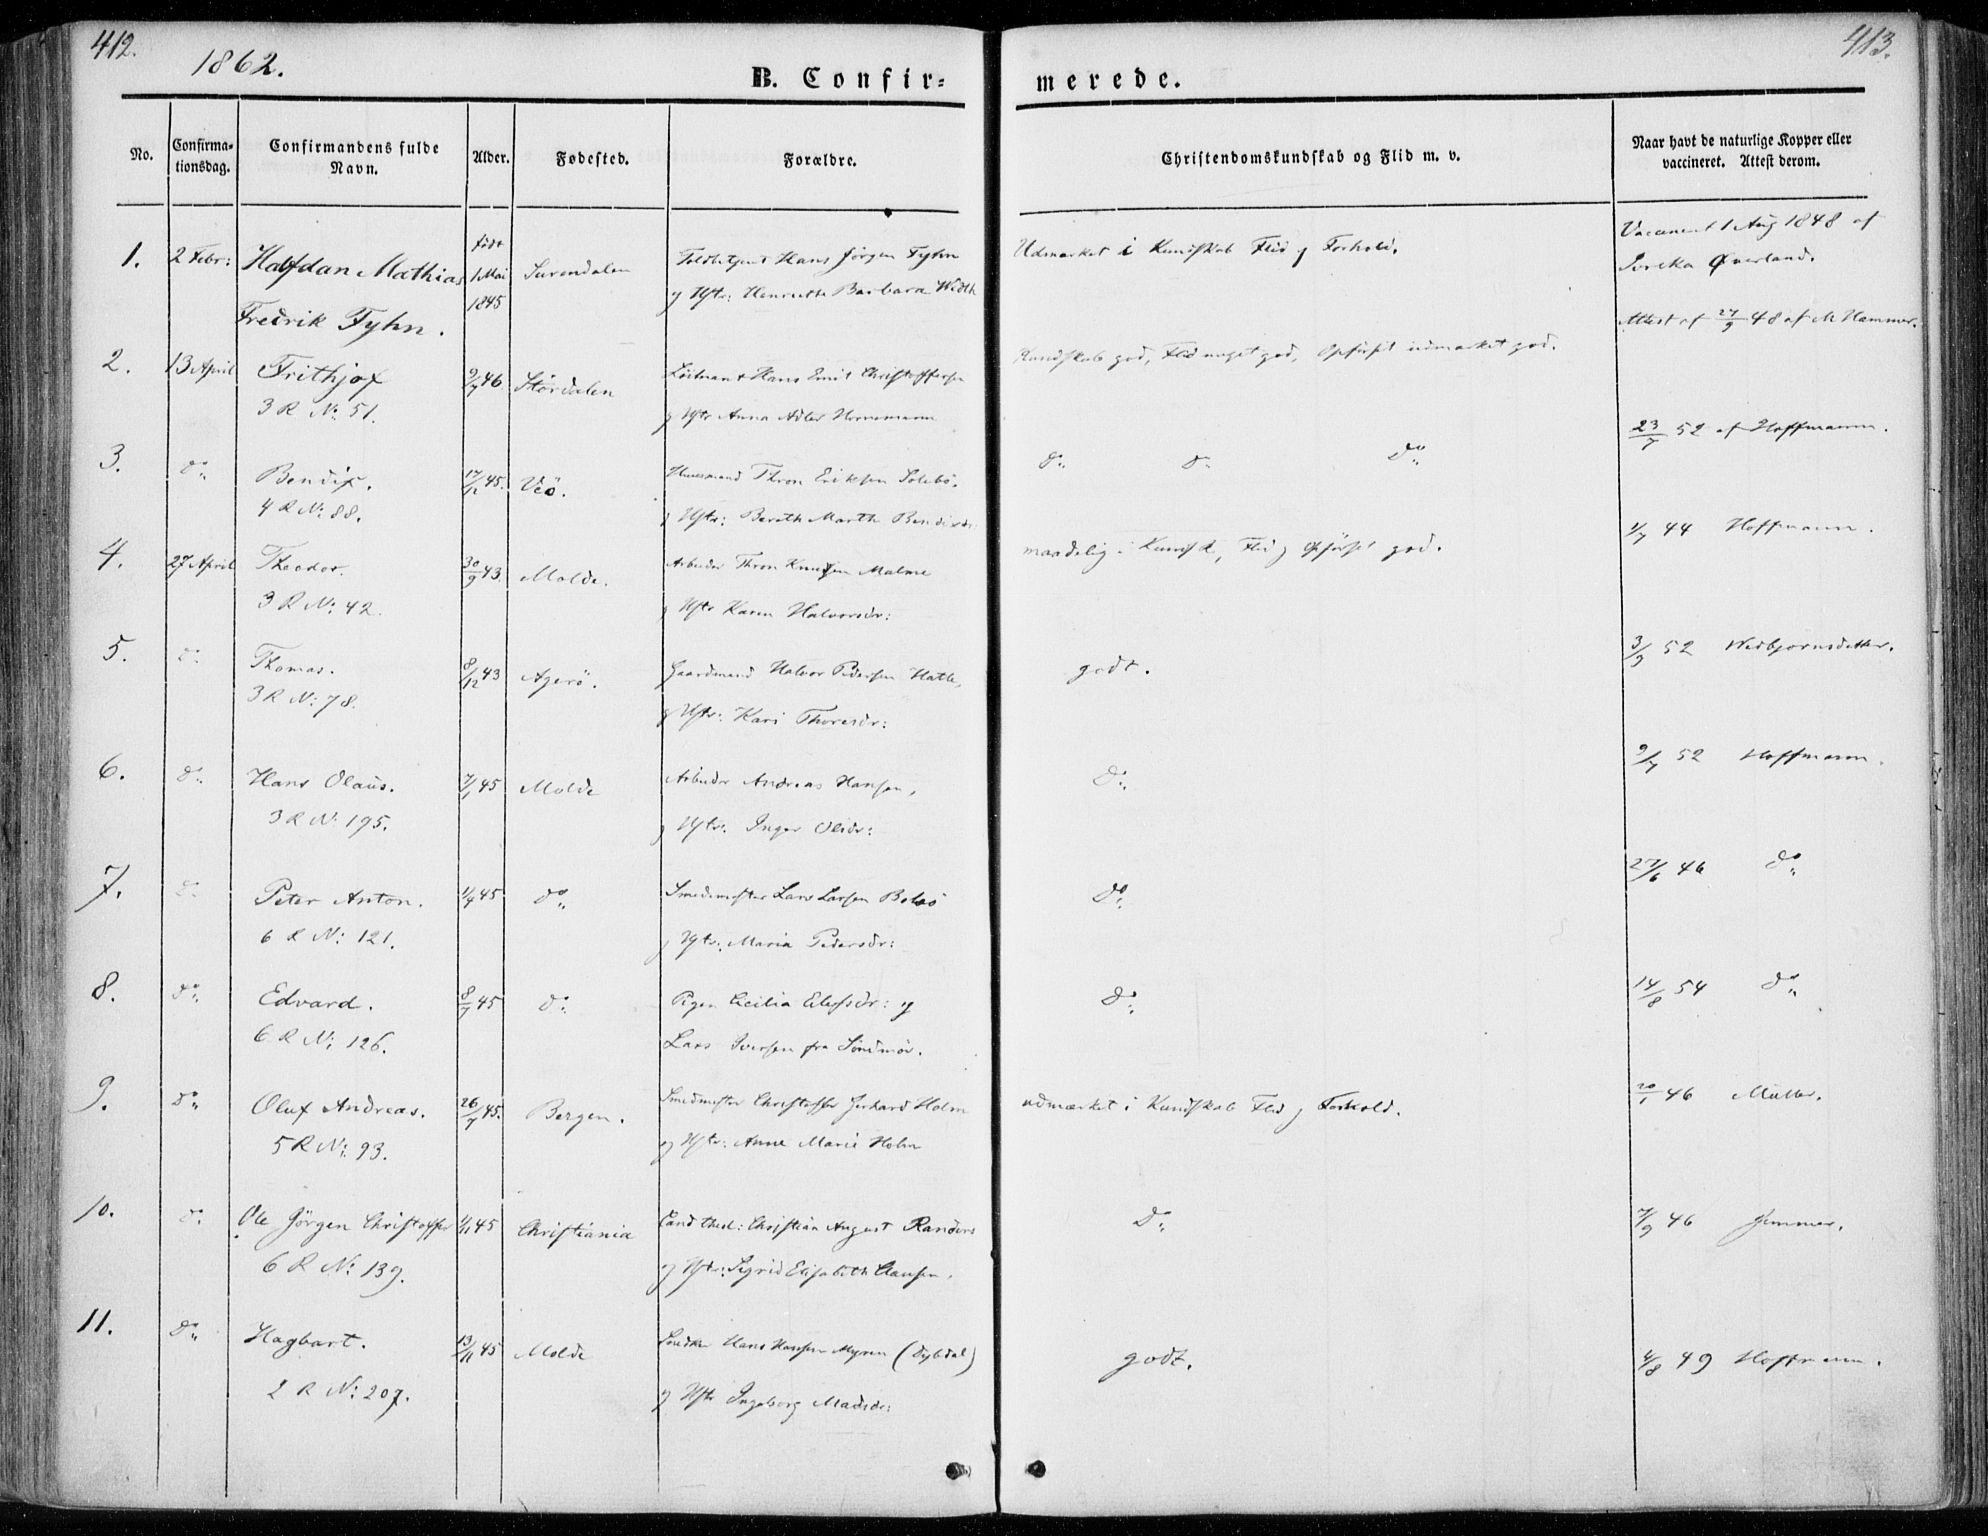 412.
413.
1862.
B. Confir=
merede.
No.
Confirma=
tionsdag.
Confirmandens fulde
Navn.
Alder.
Fødested.
Forældre.
Christendomskundskab og Flid m. v.
Naar havt de naturlige Kopper eller
vaccineret. Attest derom.
1.
2 Febr:
Halfdan Mathias
Fredrik Tyhn.
født
1 Mai
1845
Surendalen
Hans Jörgen Tyhn
og Hstr: Henriette Barbara Wedth
Udmærket i Kundskab Flid og Forhold.
1 Aug 1848 af
Øverland.
Attest af 27/9 48 af M Hammer.
2.
13 April
Frithjof
3 R No 51.
9/7 46
Stördalen
Hans Emil Christoffersen
og Hstr Anna Adler Hornemann
Kundskab god, Flid meget god, Opførsel udmærket god.
23/7 52 af Hoffmann.
3.
do
Bendix.
4 R No: 88.
17/12 45.
Veö.
Huusmand Thron Eriksen Solebö.
og Hstr: Berith Marth Bendixdr:
do do Do
1/7 44 Hoffmann.
4.
27 April
Theodor.
3 R No: 42.
30/9 43.
Molde.
Arbeider Thron Knudsen Malme
og Hstr Karen Halvorsdr:
maadelig i Kundsk, Flid og Opførsel god.
3/9 52 Wedbjornsdatter.
5.
do
Thomas.
3 R No: 78.
8/12 43
Agerö.
Gaardmand Halvor Pedersen Hatle,
og Hstr: Kari Thoresdr:
godt.
9/7 52 Hoffmann.
6.
do
Hans Olaus.
3 R No 195.
7/1 45
Molde
Arbeider Andreas Hansen,
og Hstr: Inger Olsdr:
Do
27/6 46 do
7.
do
Peter Anton.
6 R No: 121.
1/4 45
do
Smedmester Lars Larsen Bolsö
og Hstr: Maria Pedersdr:
Do
14/8 54 do
8.
do
Edvard.
6 R No: 126.
8/7 45
do
Pigen Cicilia Elefsdr: og
Lars Iversen fra Söndmör.
do
20/1 46 Müller.
9.
do
Oluf Andreas.
5 R No: 93.
26/7 45.
Bergen.
Smedmester Christoffer Gerhard Holm
og Hstr: Anne Marie Holm
udmærket i Kundskab Flid og Forhold.
7/9 46
10.
do
Ole Jörgen Christoffer
6 R No: 139.
1/11 45
Christiania
Cand theol: Christian August Randers
og Hstr: Sigrid Elisabeth Clausen.
Do
4/8 49 Hoffmann.
11.
do
Hagbart.
2 R No: 207.
13/11 45
Molde
Hans Hansen Myren (Dybdal)
og Hstr Ingeborg Madsdr:
godt.